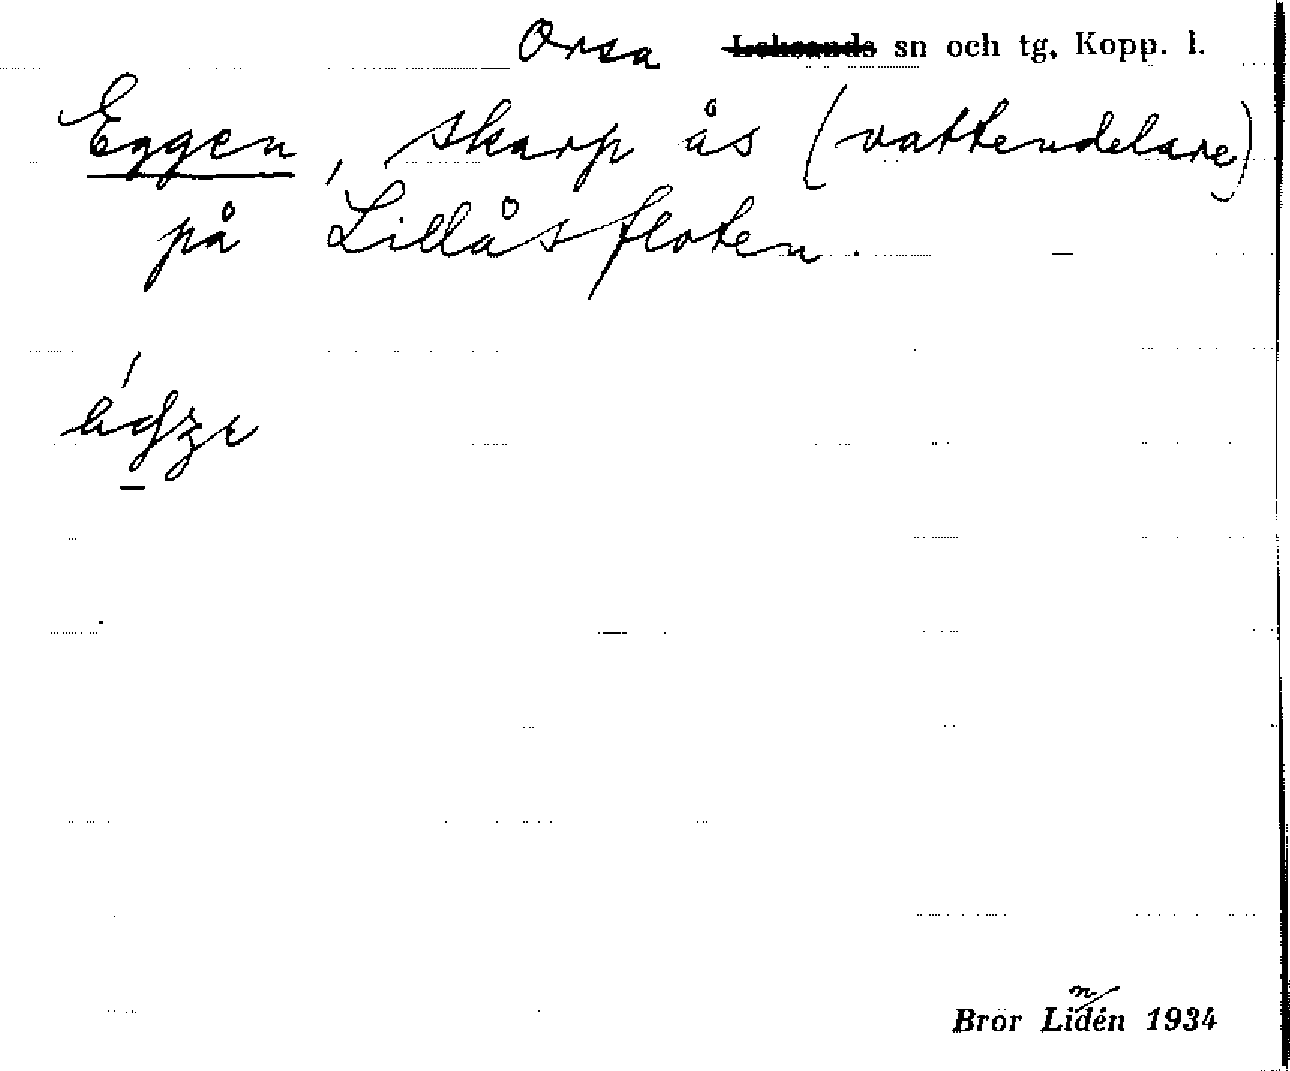 Orsa Leksands sn och tg, Kopp. l.
Eggen, skarp ås (vattendelare)
på Lillåsfloten.
Bror Lidén 1934